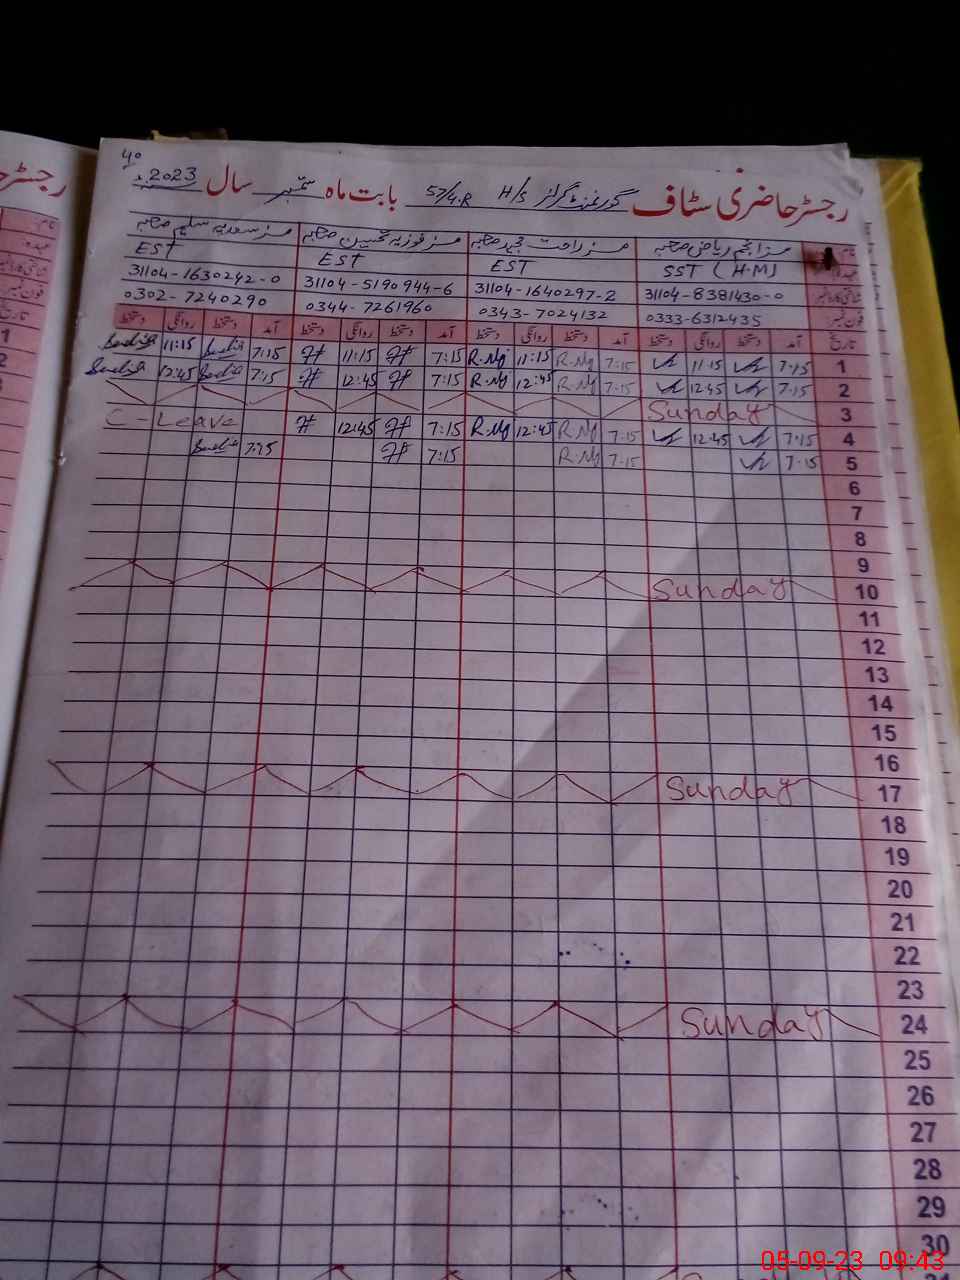 رجسٹر حاضری سٹاف گورنمنٹ گرلز H/S 57/4.R بابت ماہ ستمبر سال 2023ء
مسز انجم ریاض صاحبہ مسز راحت مجید صاحبہ مسز فوزیہ تحسین صاحبہ مسز سعدیہ سلیم صاحبہ
SST (H.M) EST EST EST
31104-8381430-0 31104-1640297-2 31104-5190944-6 31104-1630242-0
فون نمبر: 0333-6312435 0343-7024132 0344-7261960 0302-7240290
تاریخ آمد دستخط روانگی دستخط آمد دستخط روانگی دستخط آمد دستخط روانگی دستخط آمد دستخط روانگی دستخط
1 7:15 11:15 7:15 R.Mj 11:15 R.Mj 7:15 11:15 7:15 Sadia 11:15 Sadia
2 7:15 12:45 7:15 R.Mj 12:45 R.Mj 7:15 12:45 7:15 Sadia 12:45 Sadia
3 Sunday
4 7:15 12:45 7:15 R.Mj 12:45 R.Mj 7:15 12:45 C-Leave
5 7:15 7:15 R.Mj 7:15 Sadia
6
7
8
9
10 Sunday
11
12
13
14
15
16
17 Sunday
18
19
20
21
22
23
24 Sunday
25
26
27
28
29
30
05-09-23 09:43